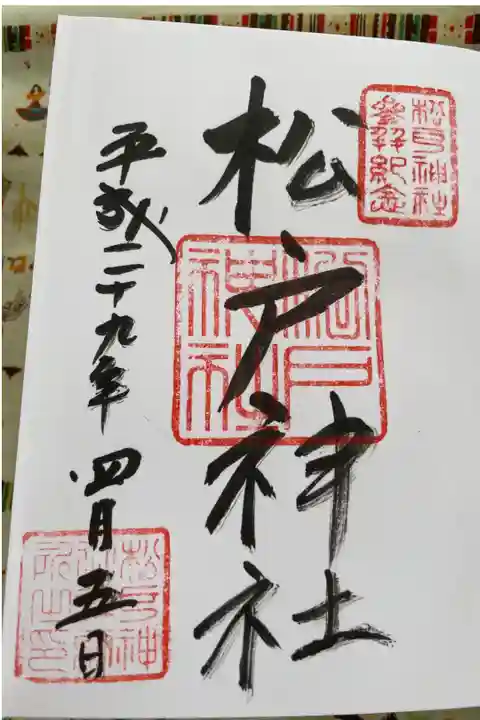 松戸神社
參拜紀念
松戸神社
松戸神社
平成二十九年四月五日
松戸神